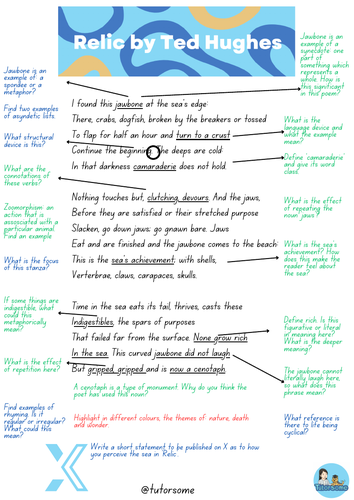 Relic by Ted Hughes
Jawbone is an
example of a
spondee or a
metaphor?
Find two examples
of asyndetic lists.
What structural
device is this?
What are the
connotations of
these verbs?
Zoomorphism: an
action that is
associated with a
particular animal.
Find an example
What is the focus
of this stanza?
If some things are
indigestible, what
could this
metaphorically
mean?
What is the effect
of repetition here?
Find examples of
rhyming. Is it
regular or irregular?
What could this
mean?
I found this jawbone at the sea's edge:
There, crabs, dogfish, broken by the breakers or tossed
To flap for half an hour and turn to a crust
Continue the beginning. The deeps are cold:
In that darkness camaraderie does not hold.
Nothing touches but, clutching, devours. And the jaws,
Before they are satisfied or their stretched purpose
Slacken, go down jaws; go gnawn bare. Jaws
Eat and are finished and the jawbone comes to the beach:
This is the sea's achievement; with shells,
Verterbrae, claws, carapaces, skulls.
Time in the sea eats its tail, thrives, casts these
Indigestibles, the spars of purposes
That failed far from the surface. None grow rich
In the sea. This curved jawbone did not laugh
But gripped, gripped and is now a cenotaph.
A cenotaph is a type of monument. Why do you think the
poet has used this noun?
Highlight in different colours, the themes of: nature, death
and wonder.
Write a short statement to be published on X as to how
you perceive the sea in 'Relic'.
Jawbone is an
example of a
synecdote: one
part of
something which
represents a
whole. How is
this significant
in this poem?
What is the
language device and
what the example
mean?
Define camaraderie
and give its word
class.
What is the effect
of repeating the
noun 'jaws'?
What is the sea's
achievement? How
does this make the
reader feel about
the sea?
Define rich. Is this
figurative or literal
in meaning here?
What is the deeper
meaning?
The jawbone cannot
literally laugh here,
so what does this
phrase mean?
What reference is
there to life being
cyclical?
@tutorsome
Tutorsome